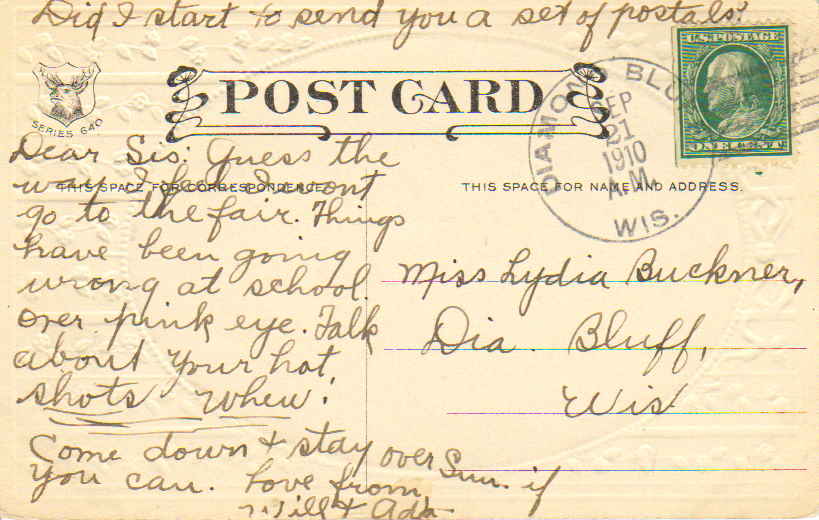 Did I start to send you a set of postals?
SERIES 640
POST CARD
U.S. POSTAGE
ONE CENT
DIAMOND BLUFF
SEP
21
1910
A.M.
WIS.
Dear Sis: Guess the
way I feel I wont
THIS SPACE FOR CORRESPONDENCE
go to the fair. Things
have been going
wrong at school
over pink eye. Talk
about your hot
shots whew!
Come down + stay over Sun. if
you can. Love from
Will + Ada
THIS SPACE FOR NAME AND ADDRESS.
Miss Lydia Buckner,
Dia. Bluff,
Wis